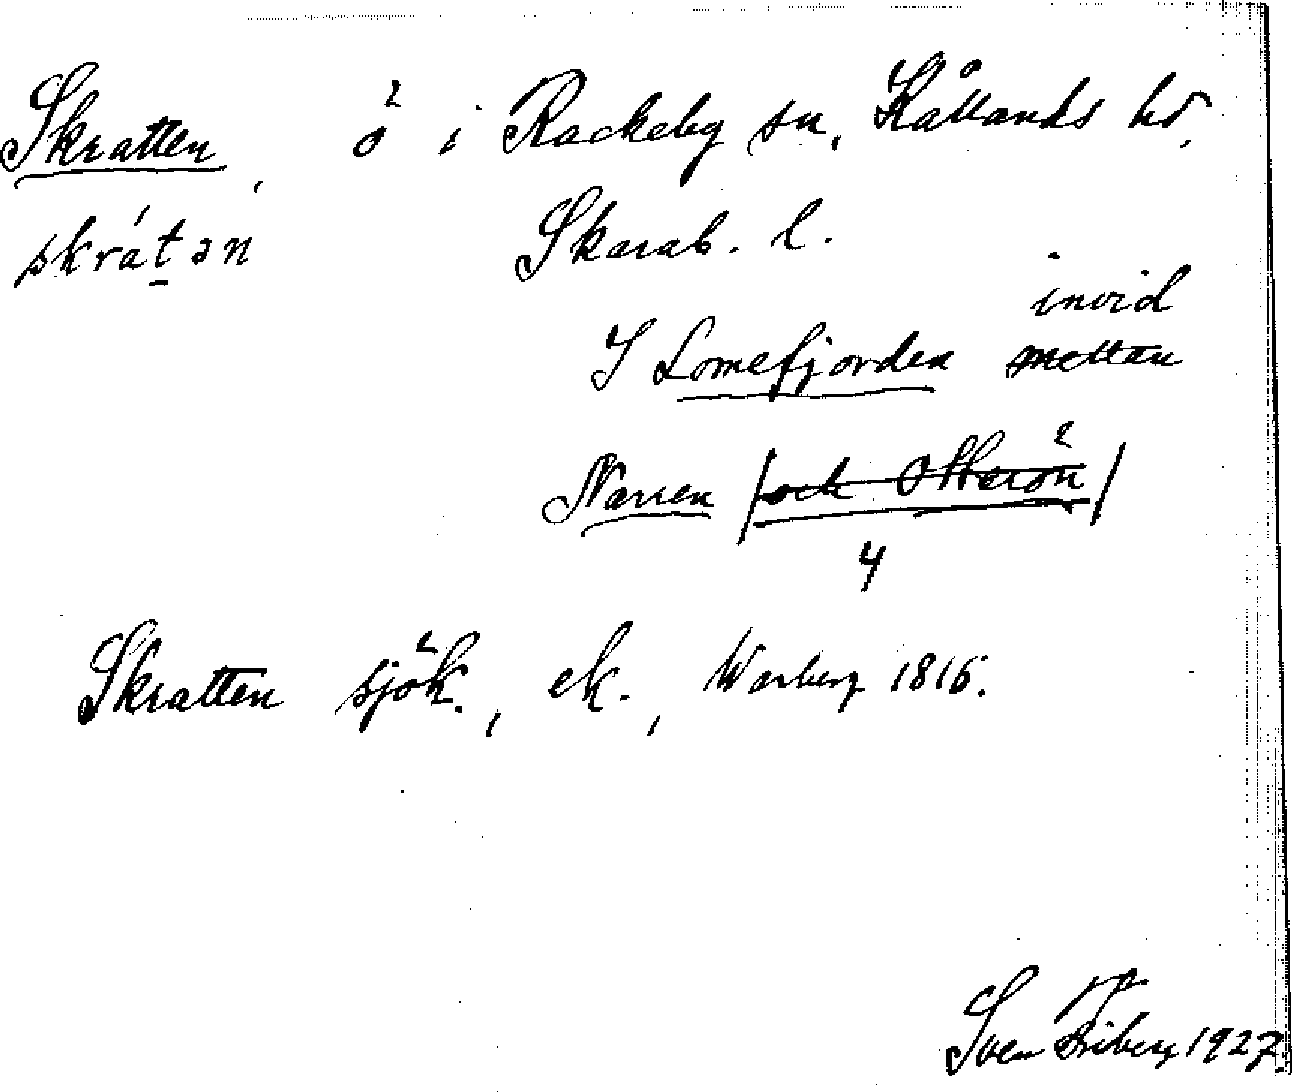 Skratten, ö i Rackeby sn, Kållands hd,
skrátən Skarab. l.
invid
I Lomefjorden mellan
Narren /och Otterön/
4
Skratten sjök., ek., Warberg 1816.
Sven Friberg 1927